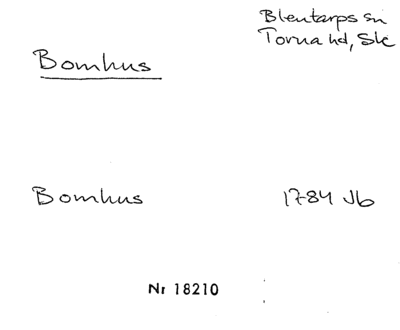 Blentarps sn
Torna hd, Sk
Bomhus
Bomhus 1784 Jb
Nr 18210